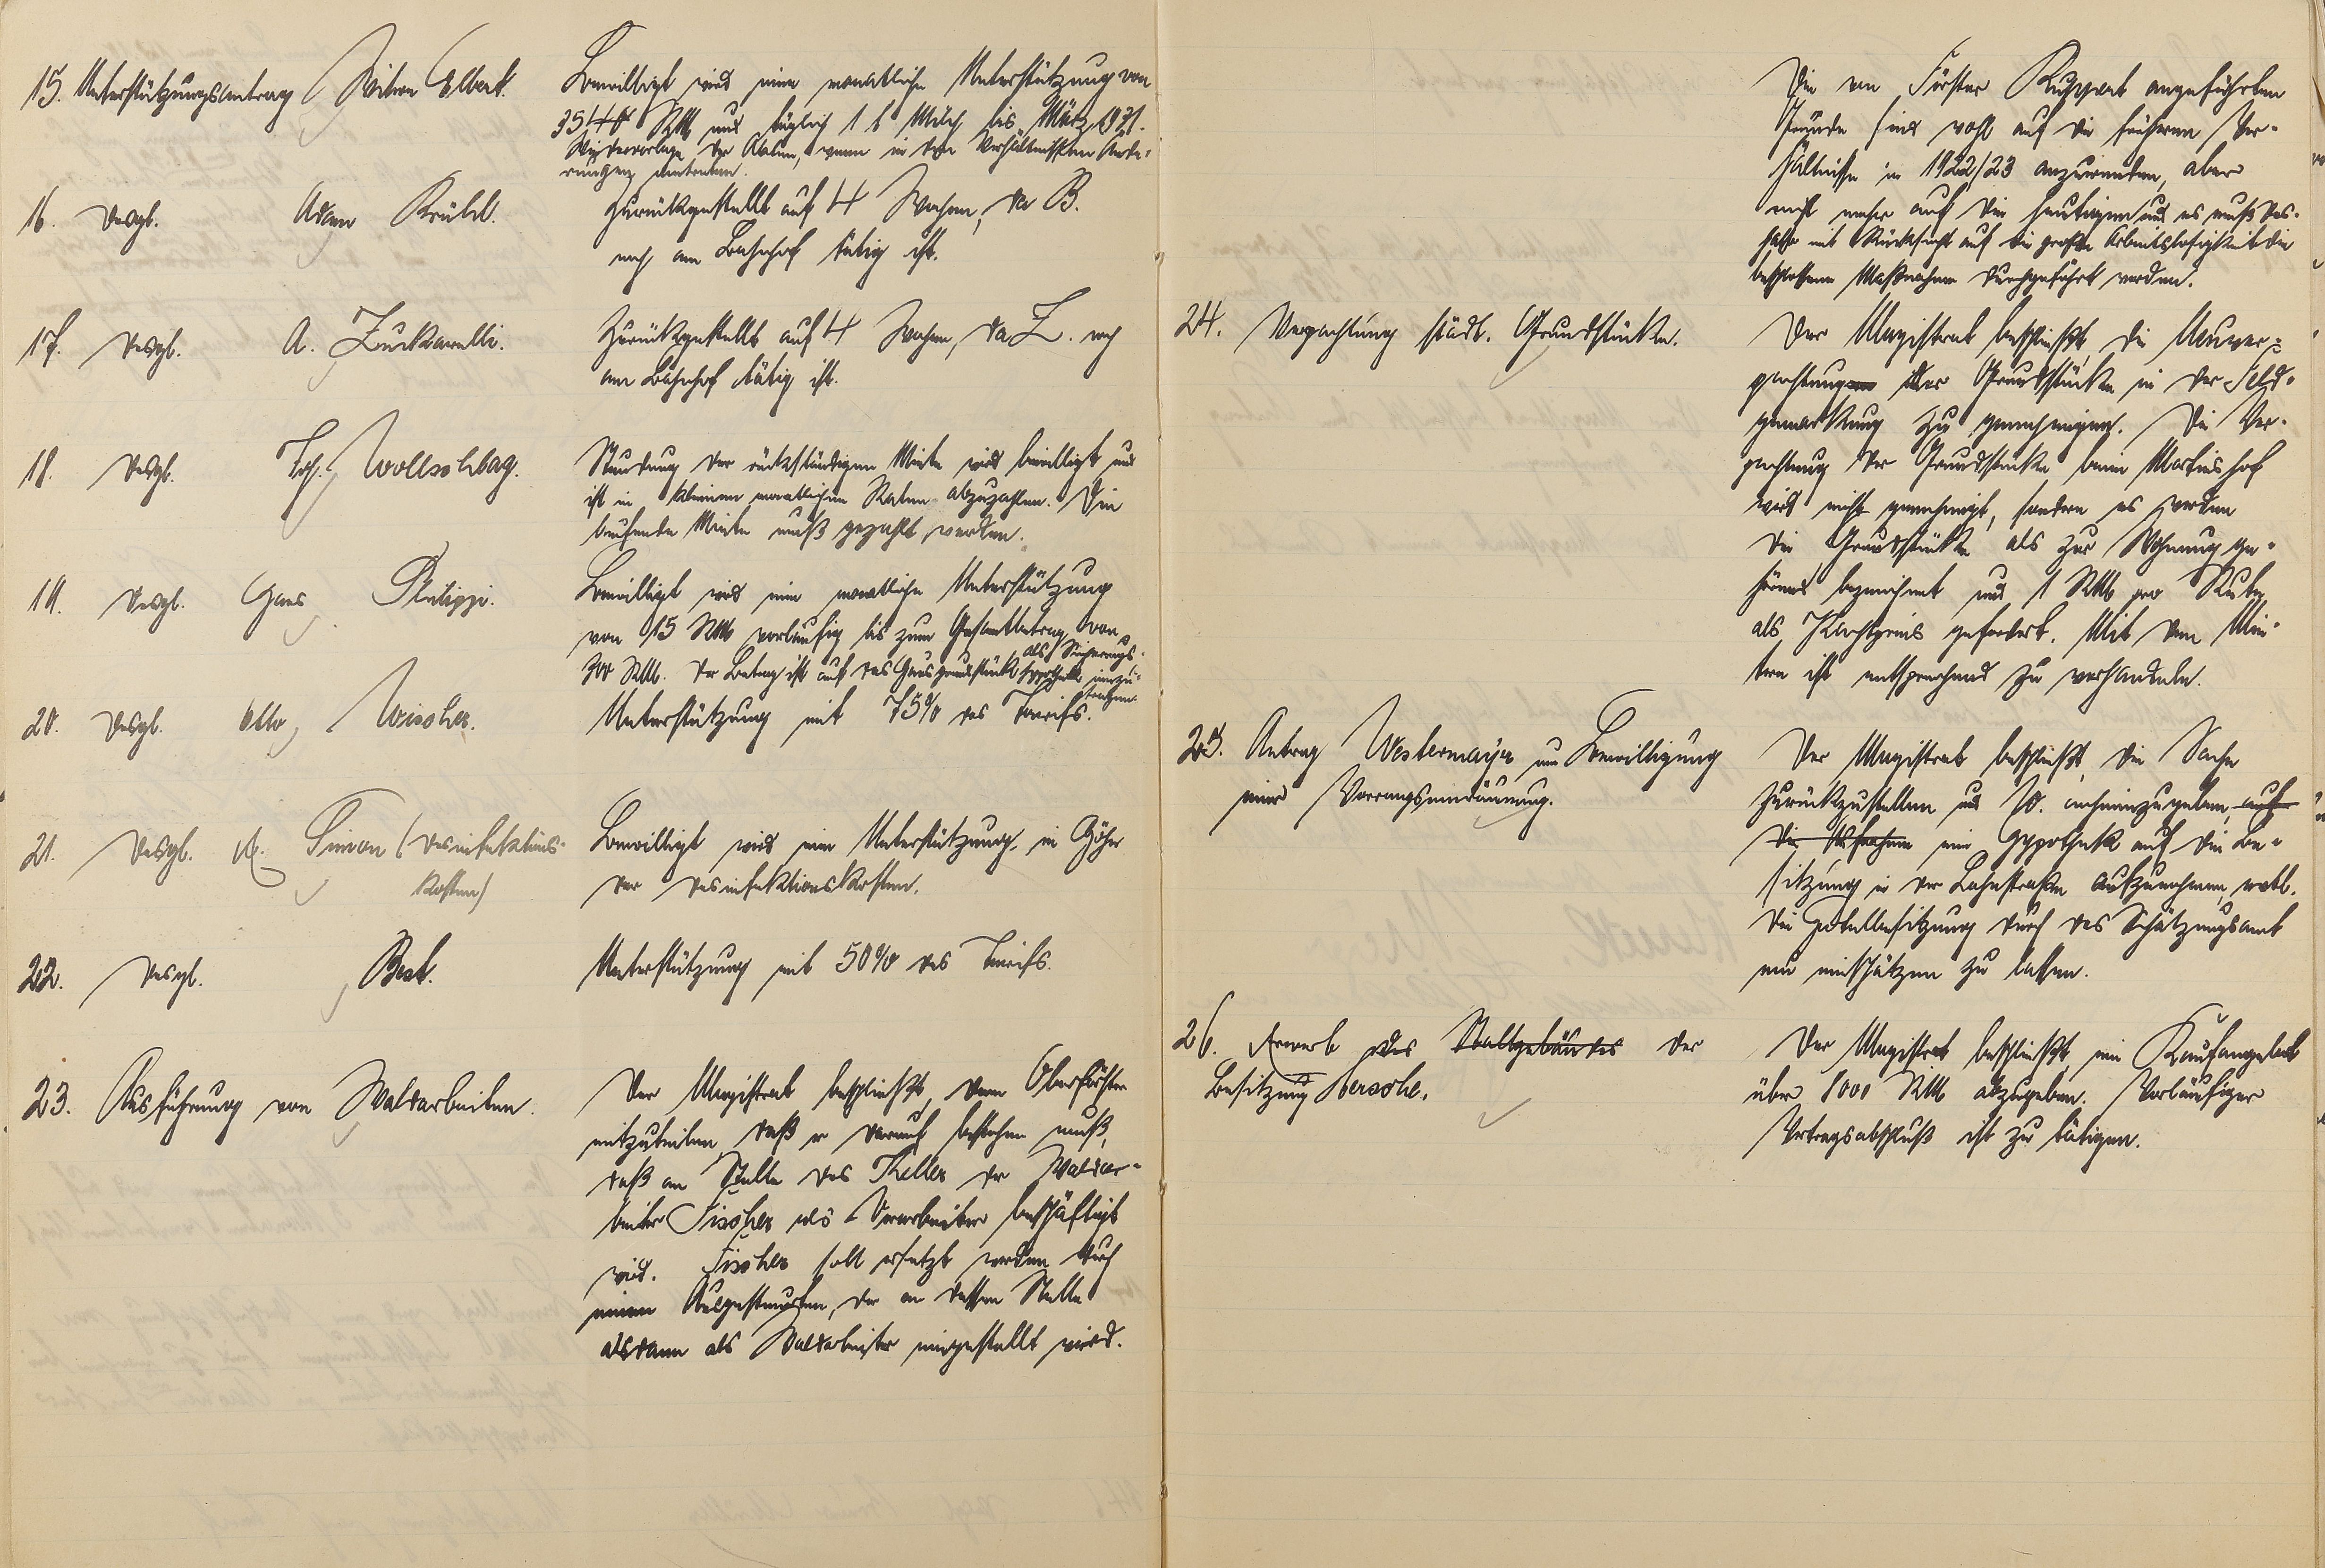 15. Unterstützungsantrag Witwe Elbert.
Bewilligt wird eine monatliche Unterstützung von
35,40 RM und täglich 1 l Milch bis März 1931.
Wiedervorlage der Akten, wenn in den Verhältnissen Ände-
rungen eintreten.
16. Desgl. Adam Brühl.
Zurückgestellt auf 4 Wochen, da B.
noch am Bahnhof tätig ist.
17. Desgl. A. Zuckarelli.
Zurückgestellt auf 4 Wochen, da Z. noch
am Bahnhof tätig ist.
18. Desgl. Joh. Wollschlag.
Stundung der rückständigen Miete wird bewilligt und
ist in kleinen monatlichen Raten abzuzahlen. Die
laufende Miete muß gezahlt werden.
19. Desgl. Hans Philippi.
Bewilligt wird eine monatliche Unterstützung
von 15 RM vorläufig bis zum Gesamtbetrag von
300 RM. Der Betrag ist auf das Hausgrundstück als Sicherungs-
hypothek einzu-
tragen.
20. Desgl. Otto Wischer.
Unterstützung mit 75% des Tarifs.
21. Desgl. A. Simon (Desinfektions-
kosten)
Bewilligt wird eine Unterstützung in Höhe
der Desinfektionskosten.
22. Desgl. Best.
Unterstützung mit 50% des Tarifs.
23. Ausführung von Waldarbeiten.
Der Magistrat beschließt, dem Oberförster
mitzuteilen, daß er darauf bestehen muß,
daß an Stelle des Keller der Waldar-
beiter Fischer als Vorarbeiter beschäftigt
wird. Fischer soll ersetzt werden durch
einen Ausgesteuerten, der an dessen Stelle
alsdann als Waldarbeiter eingestellt wird.
Die von Förster Ruppert angeführten
Gründe sind wohl auf die früheren Ver-
hältnisse in 1922/23 anzuwenden, aber
nicht mehr auf die heutigen und es muß des-
halb mit Rücksicht auf die große Arbeitslosigkeit die
beschlossene Maßnahme durchgeführt werden.
24. Verpachtung städt. Grundstücke.
Der Magistrat beschließt, die Neuver-
pachtung der Grundstücke in der Feld-
gemarkung zu genehmigen. Die Ver-
pachtung der Grundstücke beim Martinshof
wird nicht genehmigt, sondern es werden
die Grundstücke als zur Wohnung ge-
hörend bezeichnet und 1 RM pro Rute
als Pachtpreis gefordert. Mit den Mie-
tern ist entsprechend zu verhandeln.
25. Antrag Westermayer um Bewilligung
einer Vorrangseinräumung.
Der Magistrat beschließt, die Sache
zurückzustellen und W. anheimzugeben, auf
die Aufnahme eine Hypothek auf die Be-
sitzung in der Bahnstraße aufzunehmen, evtl.
die Hotelbesitzung durch das Schätzungsamt
neu einschätzen zu lassen.
26. Erwerb des Stallgebäudes der
Besitzung Hersche.
Der Magistrat beschließt, ein Kaufangebot
über 1000 RM abzugeben. Vorläufiger
Vertragsabschluß ist zu tätigen.